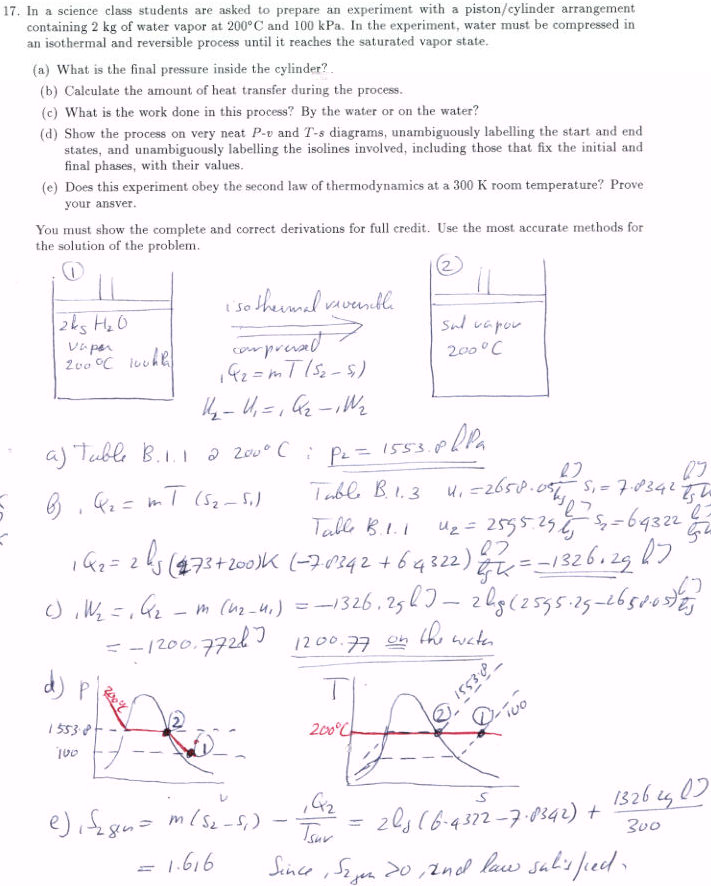 17. In a science class students are asked to prepare an experiment with a piston/cylinder arrangement
containing 2 kg of water vapor at 200°C and 100 kPa. In the experiment, water must be compressed in
an isothermal and reversible process until it reaches the saturated vapor state.
(a) What is the final pressure inside the cylinder?.
(b) Calculate the amount of heat transfer during the process.
(c) What is the work done in this process? By the water or on the water?
(d) Show the process on very neat P-v and T-s diagrams, unambiguously labelling the start and end
states, and unambiguously labelling the isolines involved, including those that fix the initial and
final phases, with their values.
(e) Does this experiment obey the second law of thermodynamics at a 300 K room temperature? Prove
your ansver.
You must show the complete and correct derivations for full credit. Use the most accurate methods for
the solution of the problem.
①
2kg H₂O
vapor
200°C 100kPa
isothermal reversible
compressed
₁Q₂ = mT(s₂-s₁)
U₂-U₁ = ₁Q₂ - ₁W₂
②
Sat vapor
200°C
a) Table B.1.1 @ 200°C : P₂ = 1553.8 kPa
b) ₁Q₂ = mT (s₂-s₁) Table B.1.3 u₁ = 2658.05 kJ/kg s₁ = 7.8342 kJ/kg K
Table B.1.1 u₂ = 2595.29 kJ/kg s₂ = 6.4322 kJ/kg K
₁Q₂ = 2 kg (273+200)K (-7.8342 + 6.4322) kJ/kg K = -1326.29 kJ
c) ₁W₂ = ₁Q₂ - m (u₂-u₁) = -1326.29 kJ - 2kg (2595.29-2658.05) kJ/kg
= -1200.772 kJ 1200.77 on the water
d) P 200°C
1553.8
100
② ①
v
T
200°C
② 1553.8
① 100
s
e) ₁S₂gen = m(s₂-s₁) - ₁Q₂/Tsur = 2kg (6.4322-7.8342) + 1326.29 kJ/300
= 1.616 Since ₁S₂gen >0, 2nd law satisfied.